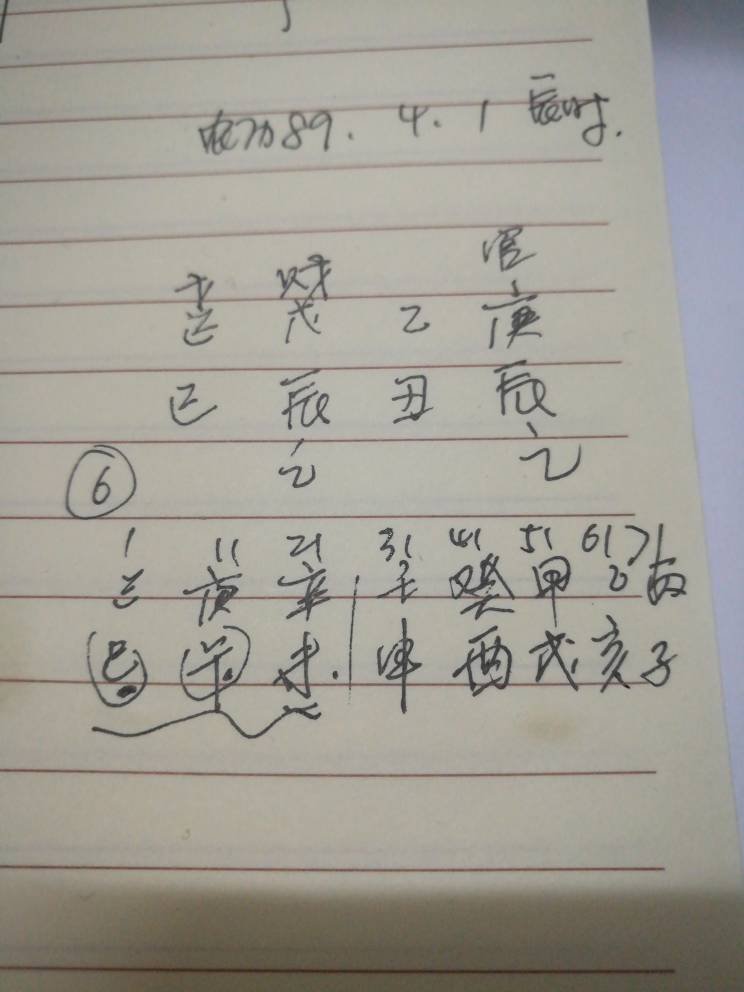 农历89.4.1辰时.
才 财 官
己 戊 乙 庚
巳 辰 丑 辰
乙 乙
6
1 11 21 31 41 51 61 71
己 庚 辛 壬 癸 甲 乙 丙
巳 午 未 申 酉 戌 亥 子